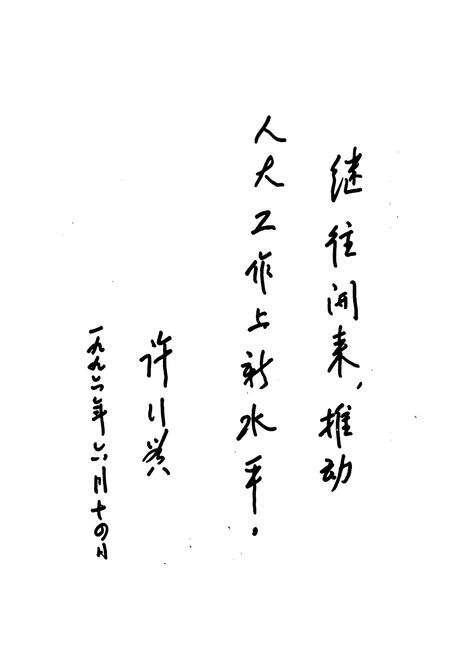 继往开来，推动
人大工作上新水平。
许行贯
一九九六年六月十四日